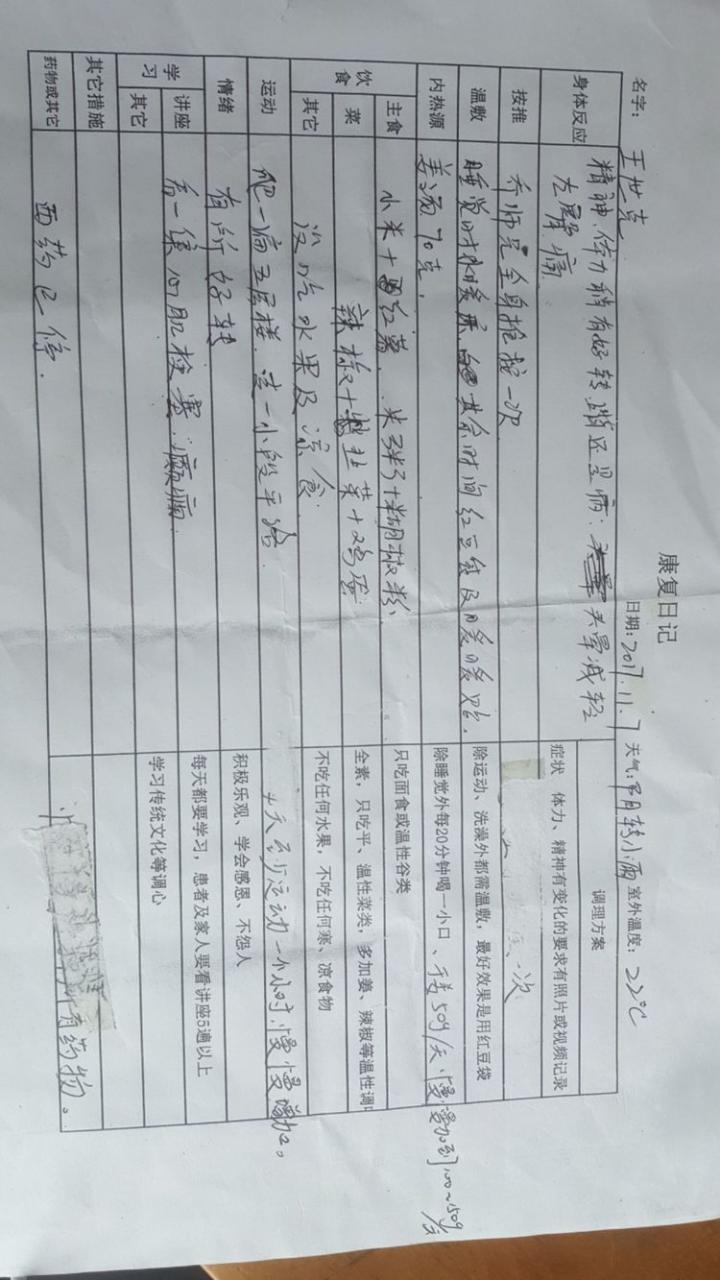 康复日记
名字：王世克 日期：2017.11.7 天气：阴转小雨 室外温度：22℃
调理方案
身体反应 精神、体力稍有好转，
头晕减轻
左 痛
症状 体力、精神有变化的要求有照片或视频记录
按推 乔师兄全身推按一次
一次
温敷 睡觉时水暖 其余时间红豆袋及暖暖贴.
除运动、洗澡外都需温敷，最好效果是用红豆袋
内热源 姜汤70克.
除睡觉外每20分钟喝一小口、干姜50g/天，慢慢加到100~150g/天
饮食 主食 小米+红薯、米 +胡椒粉、
只吃面食或温性谷类
菜 辣椒+韭菜+鸡蛋.
全素，只吃平、温性菜类，多加姜、辣椒等温性调
其它 没吃水果及凉食.
不吃任何水果，不吃任何寒、凉食物
运动 爬一遍五层楼.走一小段平路.
每天 运动一小时.慢慢增加。
情绪 有所好转
积极乐观、学会感恩、不怨人
学习 讲座 看一集心肌梗塞、癫痫.
每天都要学习，患者及家人要看讲座5遍以上
其它
学习传统文化等调心
其它措施
药物或其它 西药已停.
所有药物。